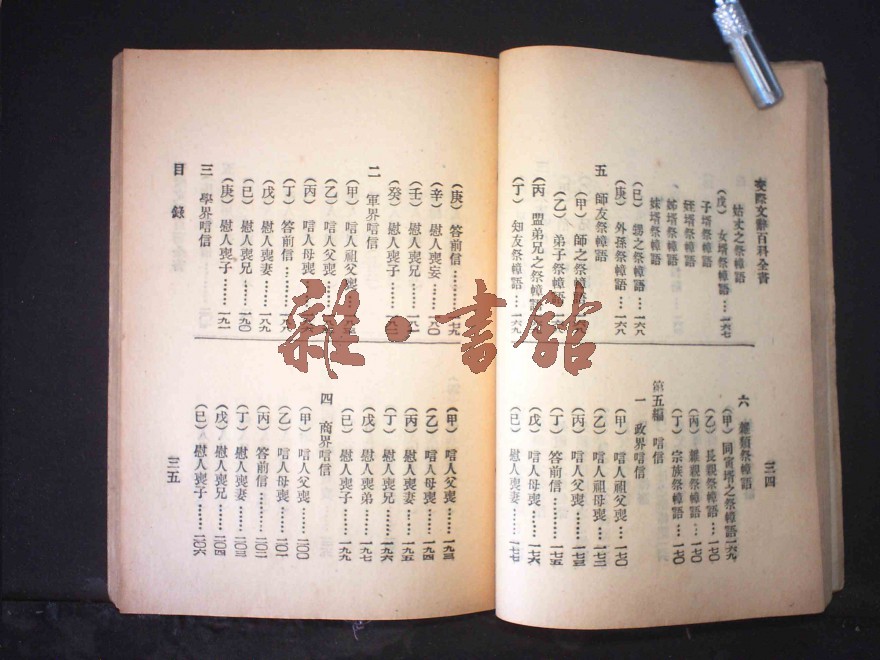 交際文辭百科全書
姑丈之祭幛語
(戊)女壻祭幛語…一六七
子壻祭幛語
姪壻祭幛語
姊壻祭幛語
妹壻祭幛語
(己)甥之祭幛語…一六八
(庚)外孫祭幛語…一六八
五 師友祭幛語
(甲)師之祭幛語
(乙)弟子祭幛語
(丙)盟弟兄之祭幛語
(丁)知友祭幛語…一六九
三四
六 雜類祭幛語
(甲)同寅壻之祭幛語一六九
(乙)長親祭幛語…一七〇
(丙)雜親祭幛語…一七〇
(丁)宗族祭幛語…一七〇
第五編 唁信
一 政界唁信
(甲)唁人祖父喪……一七〇
(乙)唁人祖母喪……一七二
(丙)唁人父喪………一七三
(丁)答前信…………一七五
(戊)唁人母喪………一七六
(己)慰人喪妻………一七七
(庚)答前信…………一七九
(辛)慰人喪妄………一八〇
(壬)慰人喪兄………一八一
(癸)慰人喪子………一八二
二 軍界唁信
(甲)唁人祖父喪
(乙)唁人父喪
(丙)唁人母喪
(丁)答前信
(戊)慰人喪妻………一八九
(己)慰人喪兄………一九〇
(庚)慰人喪子………一九一
三 學界唁信
目錄
(甲)唁人父喪………一九三
(乙)唁人母喪………一九四
(丙)慰人喪妻………一九五
(丁)慰人喪兄………一九六
(戊)慰人喪弟………一九七
(己)慰人喪子………一九九
四 商界唁信
(甲)唁人父喪………二〇〇
(乙)唁人母喪………二〇一
(丙)答前信…………二〇二
(丁)慰人喪妻………二〇三
(戊)慰人喪兄………二〇四
(己)慰人喪子………二〇六
三五
雜·書館